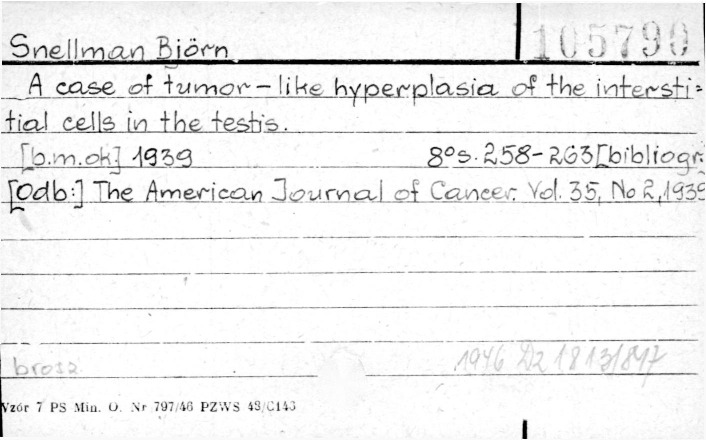 Snellman Björn
105790
A case of tumor-like hyperplasia of the intersti=
tial cells in the testis.
[b.m.ok] 1939 8° s. 258-263 [bibliogr.
[Odb:] The American Journal of Cancer. Vol. 35, No 2, 1939
brosz. 1946 Dz 1813/847
Wzór 7 PS Min. O. Nr 797/46 PZWS 48/C143